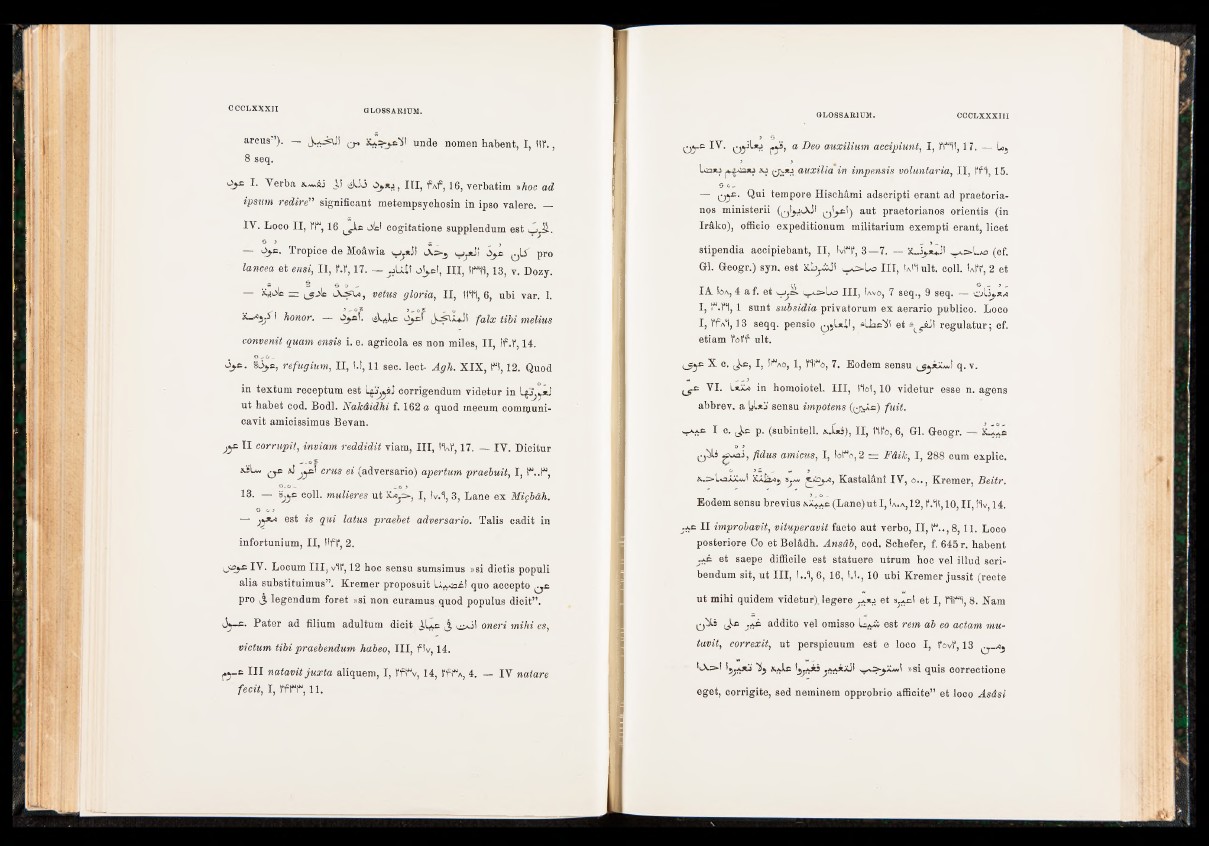 CCCLXXXII GLOSSARIUM.
arcus”). — الاعوجيّة من الخيل unde nomen habent, I, ١٩٣٠,
8 seq.
عود I. Verba نفسه الى ذلك يعود, III, ٣٨٣, 16, verbatim »hoc ad
ipsum redire” significant metempsychosin in ipso valere. —
IV. Loco II, 16 اعاد على cogitatione supplendum est الحَرْب.
— عَوْد. Tropice de Moâwia كان عود العرب وحدّ العرب pro
lancea et ensi, II, ٢٠٢, 17. — اعواد المنبر, III, 13, v. Dozy.
— مجد عادىّ = عاديّة, vetus gloria, II, 6, ubi var. l.
اكرومة honor. — المنجل أَعْوَد عليك. أَعْوَد falx tibi melius
convenit quam ensis i. e. agricola es non miles, II, 14.
عوذ. عَوْذة, refugium, II, ١٠١, 11 sec. lect. Agh. XIX, 12. Quod
in textum receptum est لغزوتها corrigendum videtur in لعوذتها
ut habet cod. Bodl. Nakâidhi f. 162 a quod mecum communi-
cavit amicissimus Bevan.
عور II corrupit, inviam reddidit viam, III, 17. — IV. Dicitur
أَعْوَرَ له عن ساقه crus ei (adversario) apertum praebuit, I, ٣٠٠٣,
13. — عَوْرة coll. mulieres ut حرمة, I, ١٧٠٩, 3, Lane ex Miçbâh.
— مُعْوِر est is qui latus praebet adversario. Talis cadit in
infortunium, II, 2.
عوض IV. Locum III, ٧٩٢, 12 hoc sensu sumsimus »si dictis populi
alia substituimus”. Kremer proposuit اغضينا quo accepto عن
pro فى legendum foret »si non curamus quod populus dicit”.
عول. Pater ad filium adultum dicit انت فى عيال oneri mihi es,
victum tibi praebendum habeo, III, 14.
عوم III natavit juxta aliquem, I, ٢٤٣٧, 14, ٢٤٣٨, 4. — IV natare
fecit, I, 11.
GLOSSARIUM. CCCLXXXIII
عون IV. قوم يُعانون, a Deo auxilium accipiunt, I, 17. — وما
يعين به بعضهم بعضا auxilia in impensis voluntaria, II, 15.
— عَوْن. Qui tempore Hischâmi adscripti erant ad praetoria-
nos ministerii (اعوان الديوان) aut praetorianos orientis (in
Irâko), officio expeditionum militarium exempti erant, licet
stipendia accipiebant, II, 3—7. — صاحب المعونة (cf.
Gl. Geogr.) syn. est صاحب الشرطة III, ult. coll. ١٨٢٢, 2 et
IA ١٥٨, 4 a f. et صاحب حرب III, ١٨٧٥, 7 seq., 9 seq. — معونات
I, 1 sunt subsidia privatorum ex aerario publico. Loco
I, ٢٤٨٩, 13 seqq. pensio المعاون, الاعطاء et الفىء regulatur; cf.
etiam ult.
عوى X c. على, I, ١٣٨٥, 1, 7. Eodem sensu استغوى q. v.
عىّ VI. متعايا in homoiotel. III, 10 videtur esse n. agens
abbrev. a تعايا sensu impotens (عنين) fuit.
عيب I c. على p. (subintell. فعله), II, 6, Gl. Geogr. — عَيْبة
نُصْح فلان, fidus amicus, I, 2 = Fâik, I, 288 cum explic.
موضع سرّه ومظنّة استنصاحه, Kastalânî IV, ٥٠٠, Kremer, Beitr.
Eodem sensu brevius عيبته (Lane) ut I, ١٨٠٨, 12, 10, II, 14.
عير II improbavit, vituperavit facto aut verbo, II, ٣٠٠, 8, 11. Loco
posteriore Co et Belâdh. Ansâb, cod. Schefer, f. 645 r. habent
غير et saepe difficile est statuere utrum hoc vel illud scri-
bendum sit, ut III, ١٠٠٩, 6, 16, ١٠١٠, 10 ubi Kremer jussit (recte
ut mihi quidem videtur) legere يعيّر et اعيّره et I, 8. Nam
غيّر على فلان addito vel omisso شيئا est rem ab eo actam mu-
tavit, correxit, ut perspicuum est e loco I, ٢٥٧٢, 13 ومن
استوجب التغيير فغيّروا عليه ولا تعيّروا احدا »si quis correctione
eget, corrigite, sed neminem opprobrio afficite” et loco Asâsi